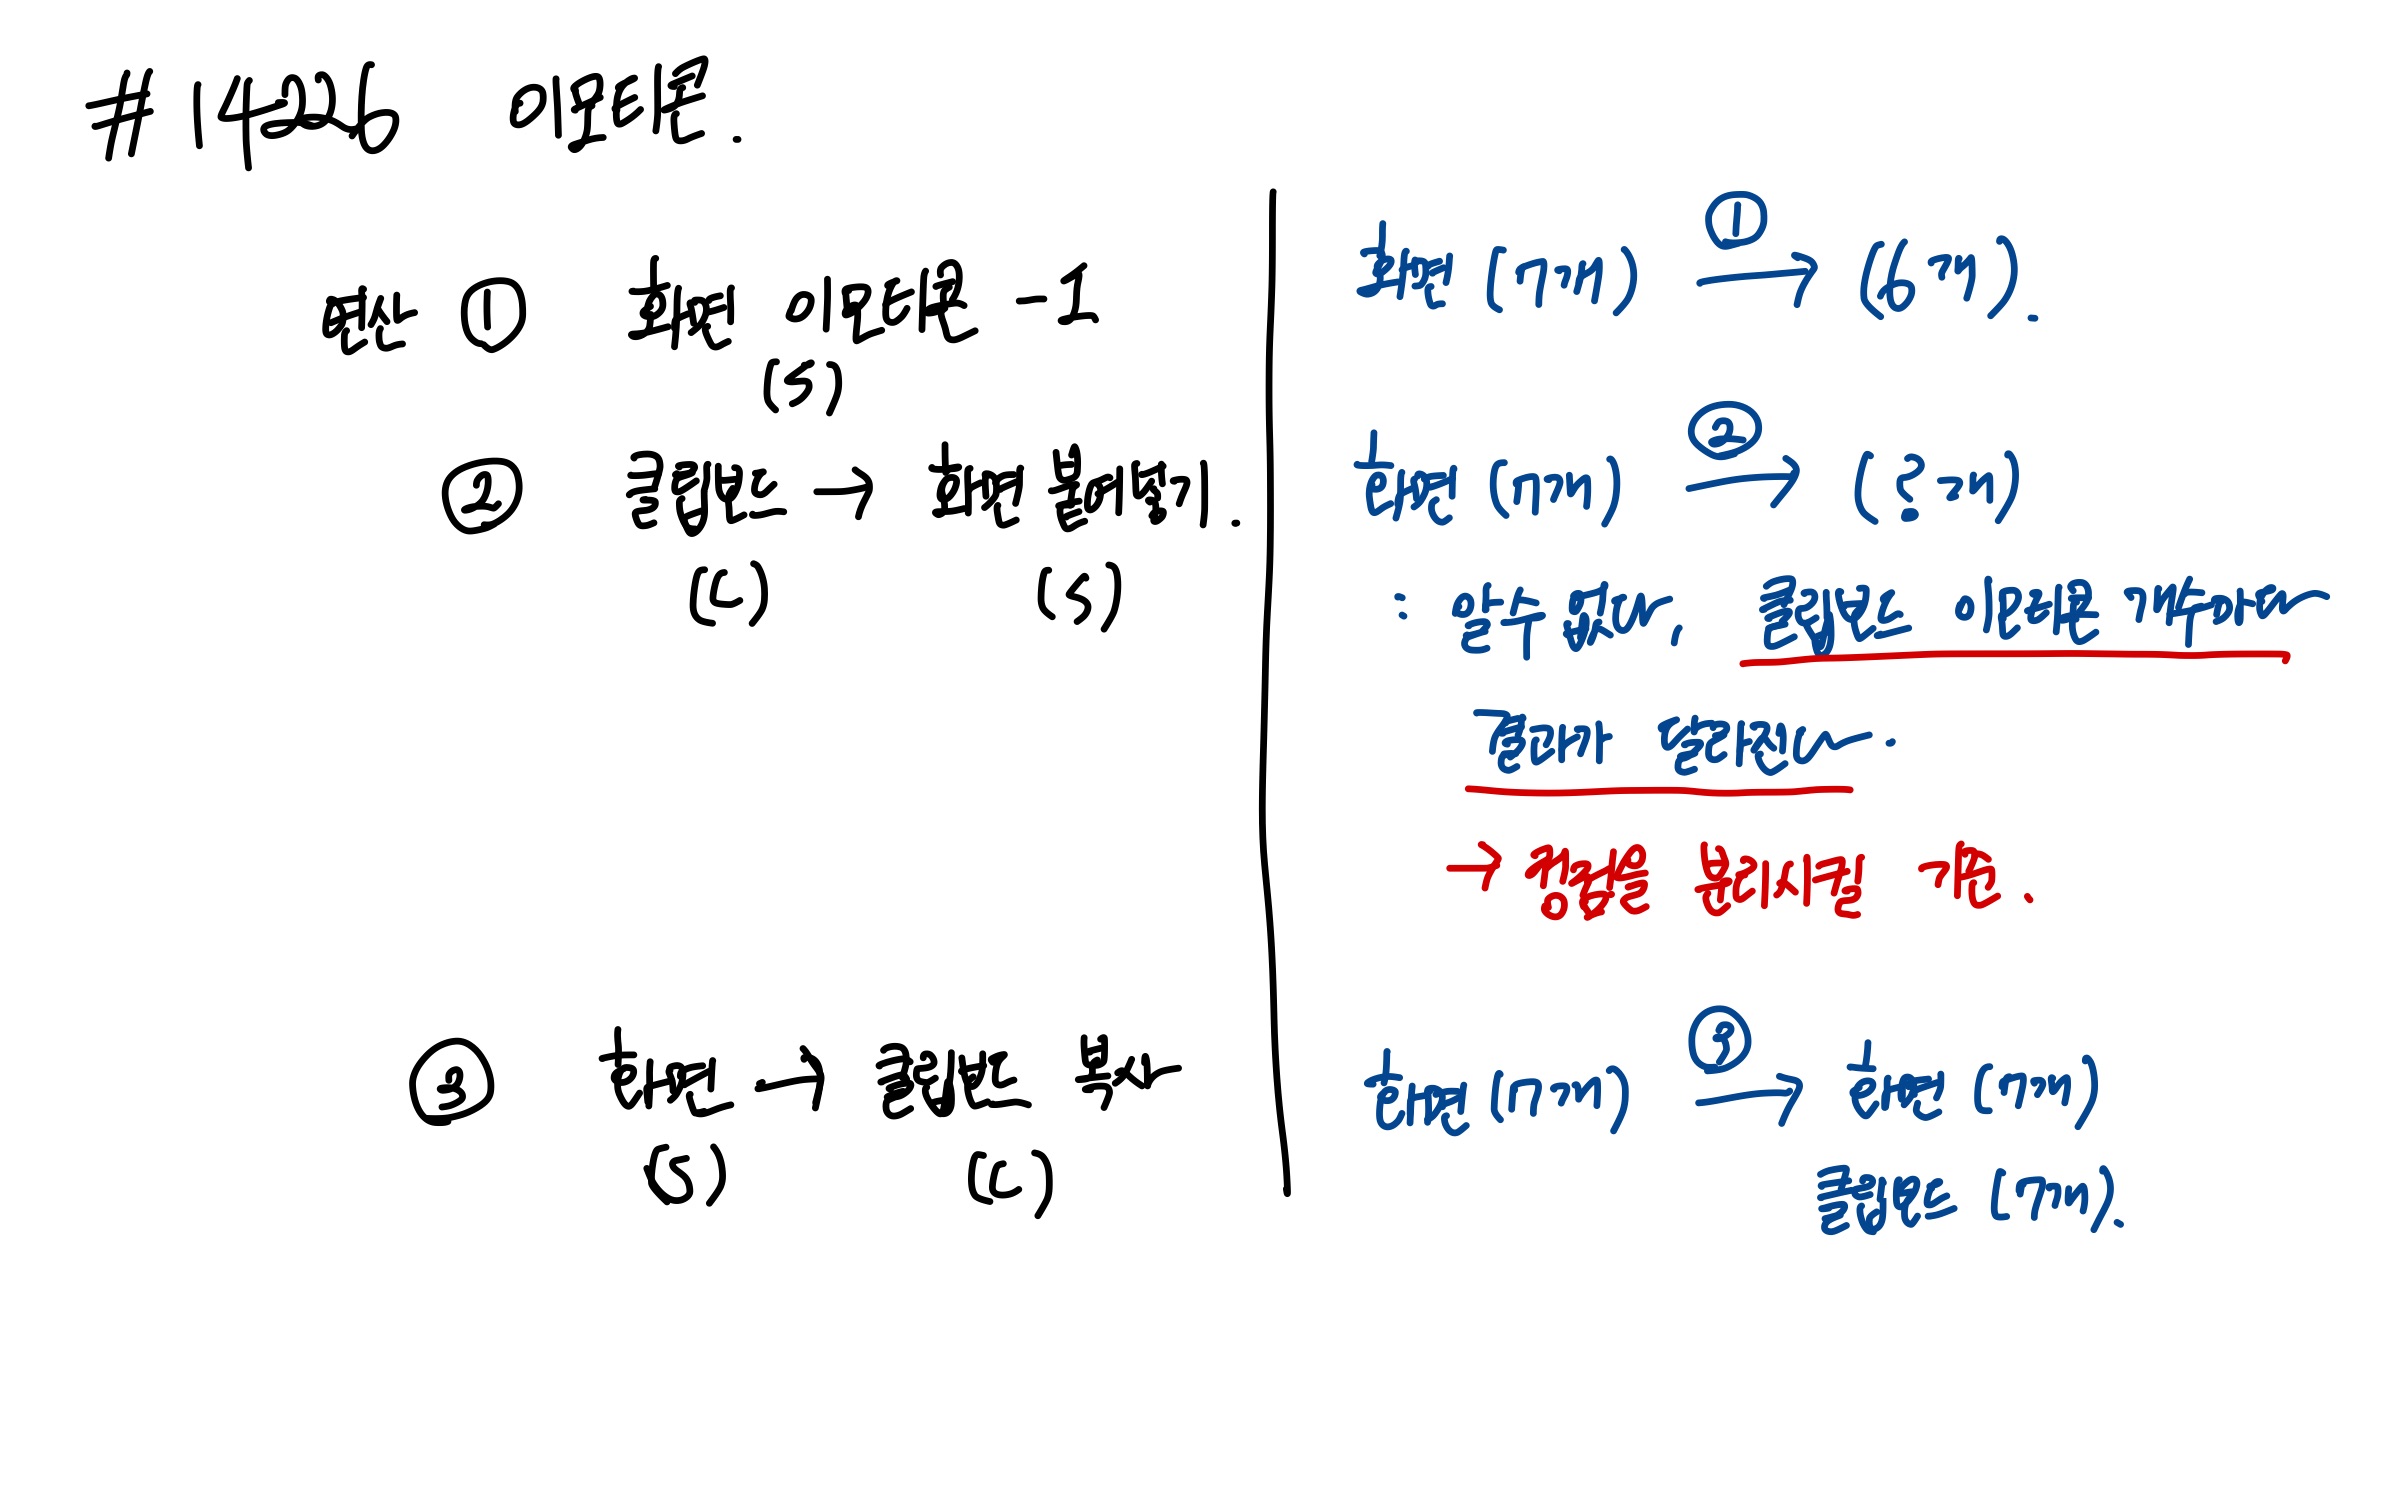 #14226 이모티콘.
연산 ① 화면 이모티콘 -1
(S)
② 클립보드 → 화면 붙여넣기.
(C) (S)
③ 화면 → 클립보드 복사
(S) (C)
화면 (7개) ① → (6개).
화면 (7개) ② → (?개)
: 알 수 없다, 클립보드 이모티콘 개수에따라
결과가 달라진다.
→ 경우를 분기시킬 기준.
화면 (7개) ③ → 화면 (7개)
클립보드 (7개).